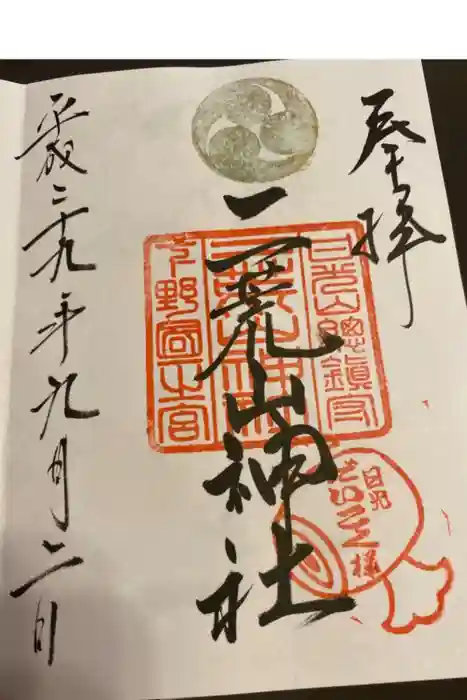 奉拝
日光山總鎮守
二荒山神社
下野國一之宮
二荒山神社
日光
だいこく様
平成二十九年九月二日